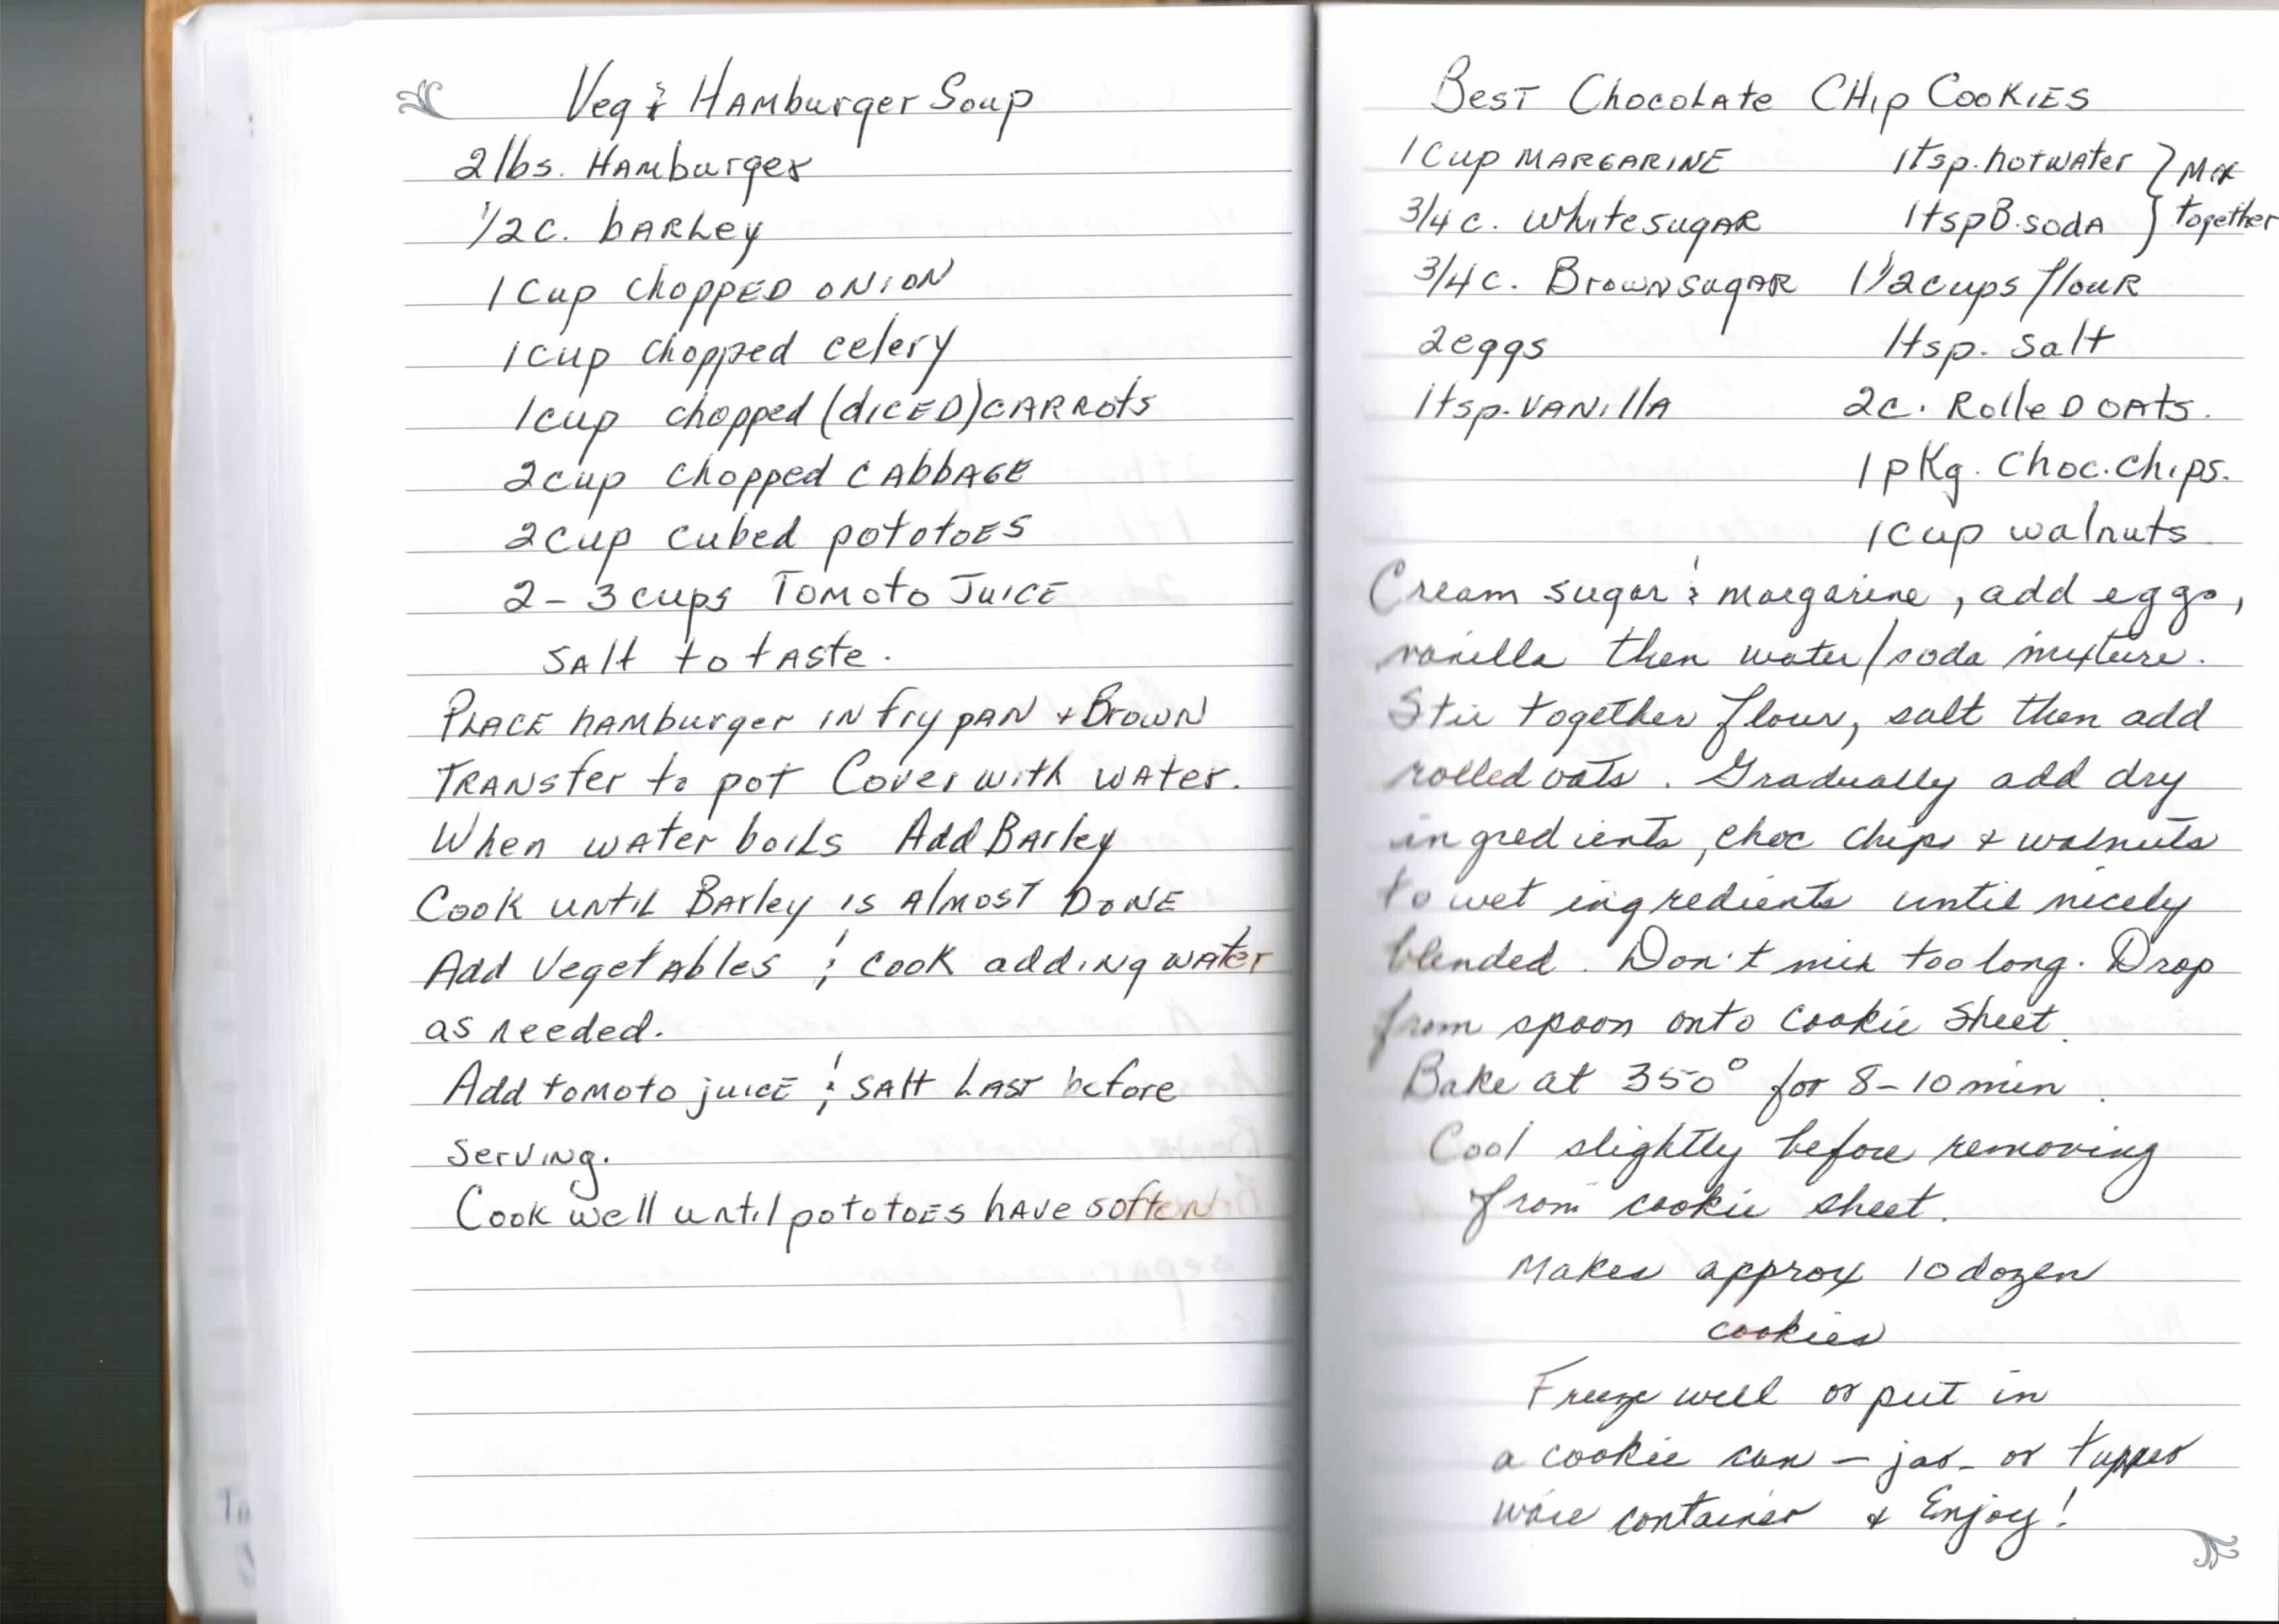 Veg & Hamburger Soup
2 lbs. Hamburger
1/2 c. barley
1 Cup chopped onion
1 cup chopped celery
1 cup chopped (diced) carrots
2 cup chopped cabbage
2 cup cubed pototoes
2 - 3 cups Tomoto Juice
Salt to taste.
Place hamburger in fry pan + Brown
Transfer to pot Cover with water.
When water boils Add Barley
Cook until Barley is almost Done
Add Vegetables & cook adding water
as needed.
Add tomoto juice & salt last before
serving.
Cook well until pototoes have soften.
Best Chocolate Chip Cookies
1 Cup Margarine 1 tsp. hot water } Mix
3/4 c. White sugar 1 tsp B. soda } together
3/4 c. Brown sugar 1 1/2 cups flour
2 eggs 1 tsp. salt
1 tsp. vanilla 2 c. Rolled oats.
1 pkg. Choc. chips.
1 cup walnuts
Cream sugar & margarine, add eggs,
vanilla then water/soda mixture.
Stir together flour, salt then add
rolled oats. Gradually add dry
ingredients, choc chips + walnuts
to wet ingredients until nicely
blended. Don't mix too long. Drop
from spoon onto cookie sheet.
Bake at 350° for 8-10 min.
Cool slightly before removing
from cookie sheet.
Makes approx 10 dozen
cookies
Freeze well or put in
a cookie can - jar - or tupper
ware container + Enjoy!